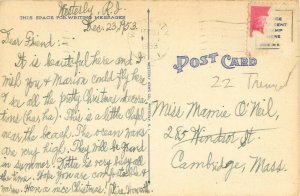 Westerly, R.I.
Dec. 23, 1953
THIS SPACE FOR WRITING MESSAGES
Dear Friend:-
It is beautiful here and I
wish you & Marion could fly here
& see all the pretty Christmas decora-
tions (ha ha). This is a little chapel
near the beach. The ocean waves
are very high. They will be grand
in summer. Lottie is very busy all
the time. Hope you are comfortable &
warm. Have a nice Christmas!
POST CARD
PLACE
CENT
STAMP
HERE
22 Tremont
Miss Mamie O'Neil,
285 Windsor St.
Cambridge, Mass.